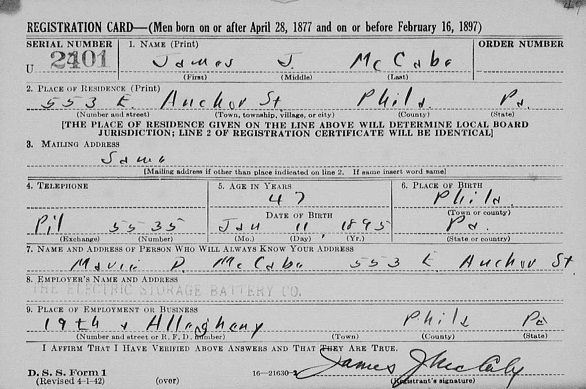 REGISTRATION CARD—(Men born on or after April 28, 1877 and on or before February 16, 1897)
SERIAL NUMBER 1. NAME (Print) ORDER NUMBER
U 2401 James J. McCabe
(First) (Middle) (Last)
2. PLACE OF RESIDENCE (Print)
553 E. Anchor St Phila Pa.
(Number and street) (Town, township, village, or city) (County) (State)
[THE PLACE OF RESIDENCE GIVEN ON THE LINE ABOVE WILL DETERMINE LOCAL BOARD
JURISDICTION; LINE 2 OF REGISTRATION CERTIFICATE WILL BE IDENTICAL]
3. MAILING ADDRESS
Same
[Mailing address if other than place indicated on line 2. If same insert word same]
4. TELEPHONE 5. AGE IN YEARS 6. PLACE OF BIRTH
47 Phila.
DATE OF BIRTH (Town or county)
5535 Jan 11 1895 Pa.
(Exchange) (Number) (Mo.) (Day) (Yr.) (State or country)
7. NAME AND ADDRESS OF PERSON WHO WILL ALWAYS KNOW YOUR ADDRESS
McCabe 553 E. Anchor St
8. EMPLOYER'S NAME AND ADDRESS
THE ELECTRIC STORAGE BATTERY CO.
9. PLACE OF EMPLOYMENT OR BUSINESS
19th & Allegheny Phila Pa
(Number and street or R. F. D. number) (Town) (County) (State)
I AFFIRM THAT I HAVE VERIFIED ABOVE ANSWERS AND THAT THEY ARE TRUE.
D. S. S. Form 1 James J McCabe
(Revised 4-1-42) (over) 16—21630-2 (Registrant's signature)